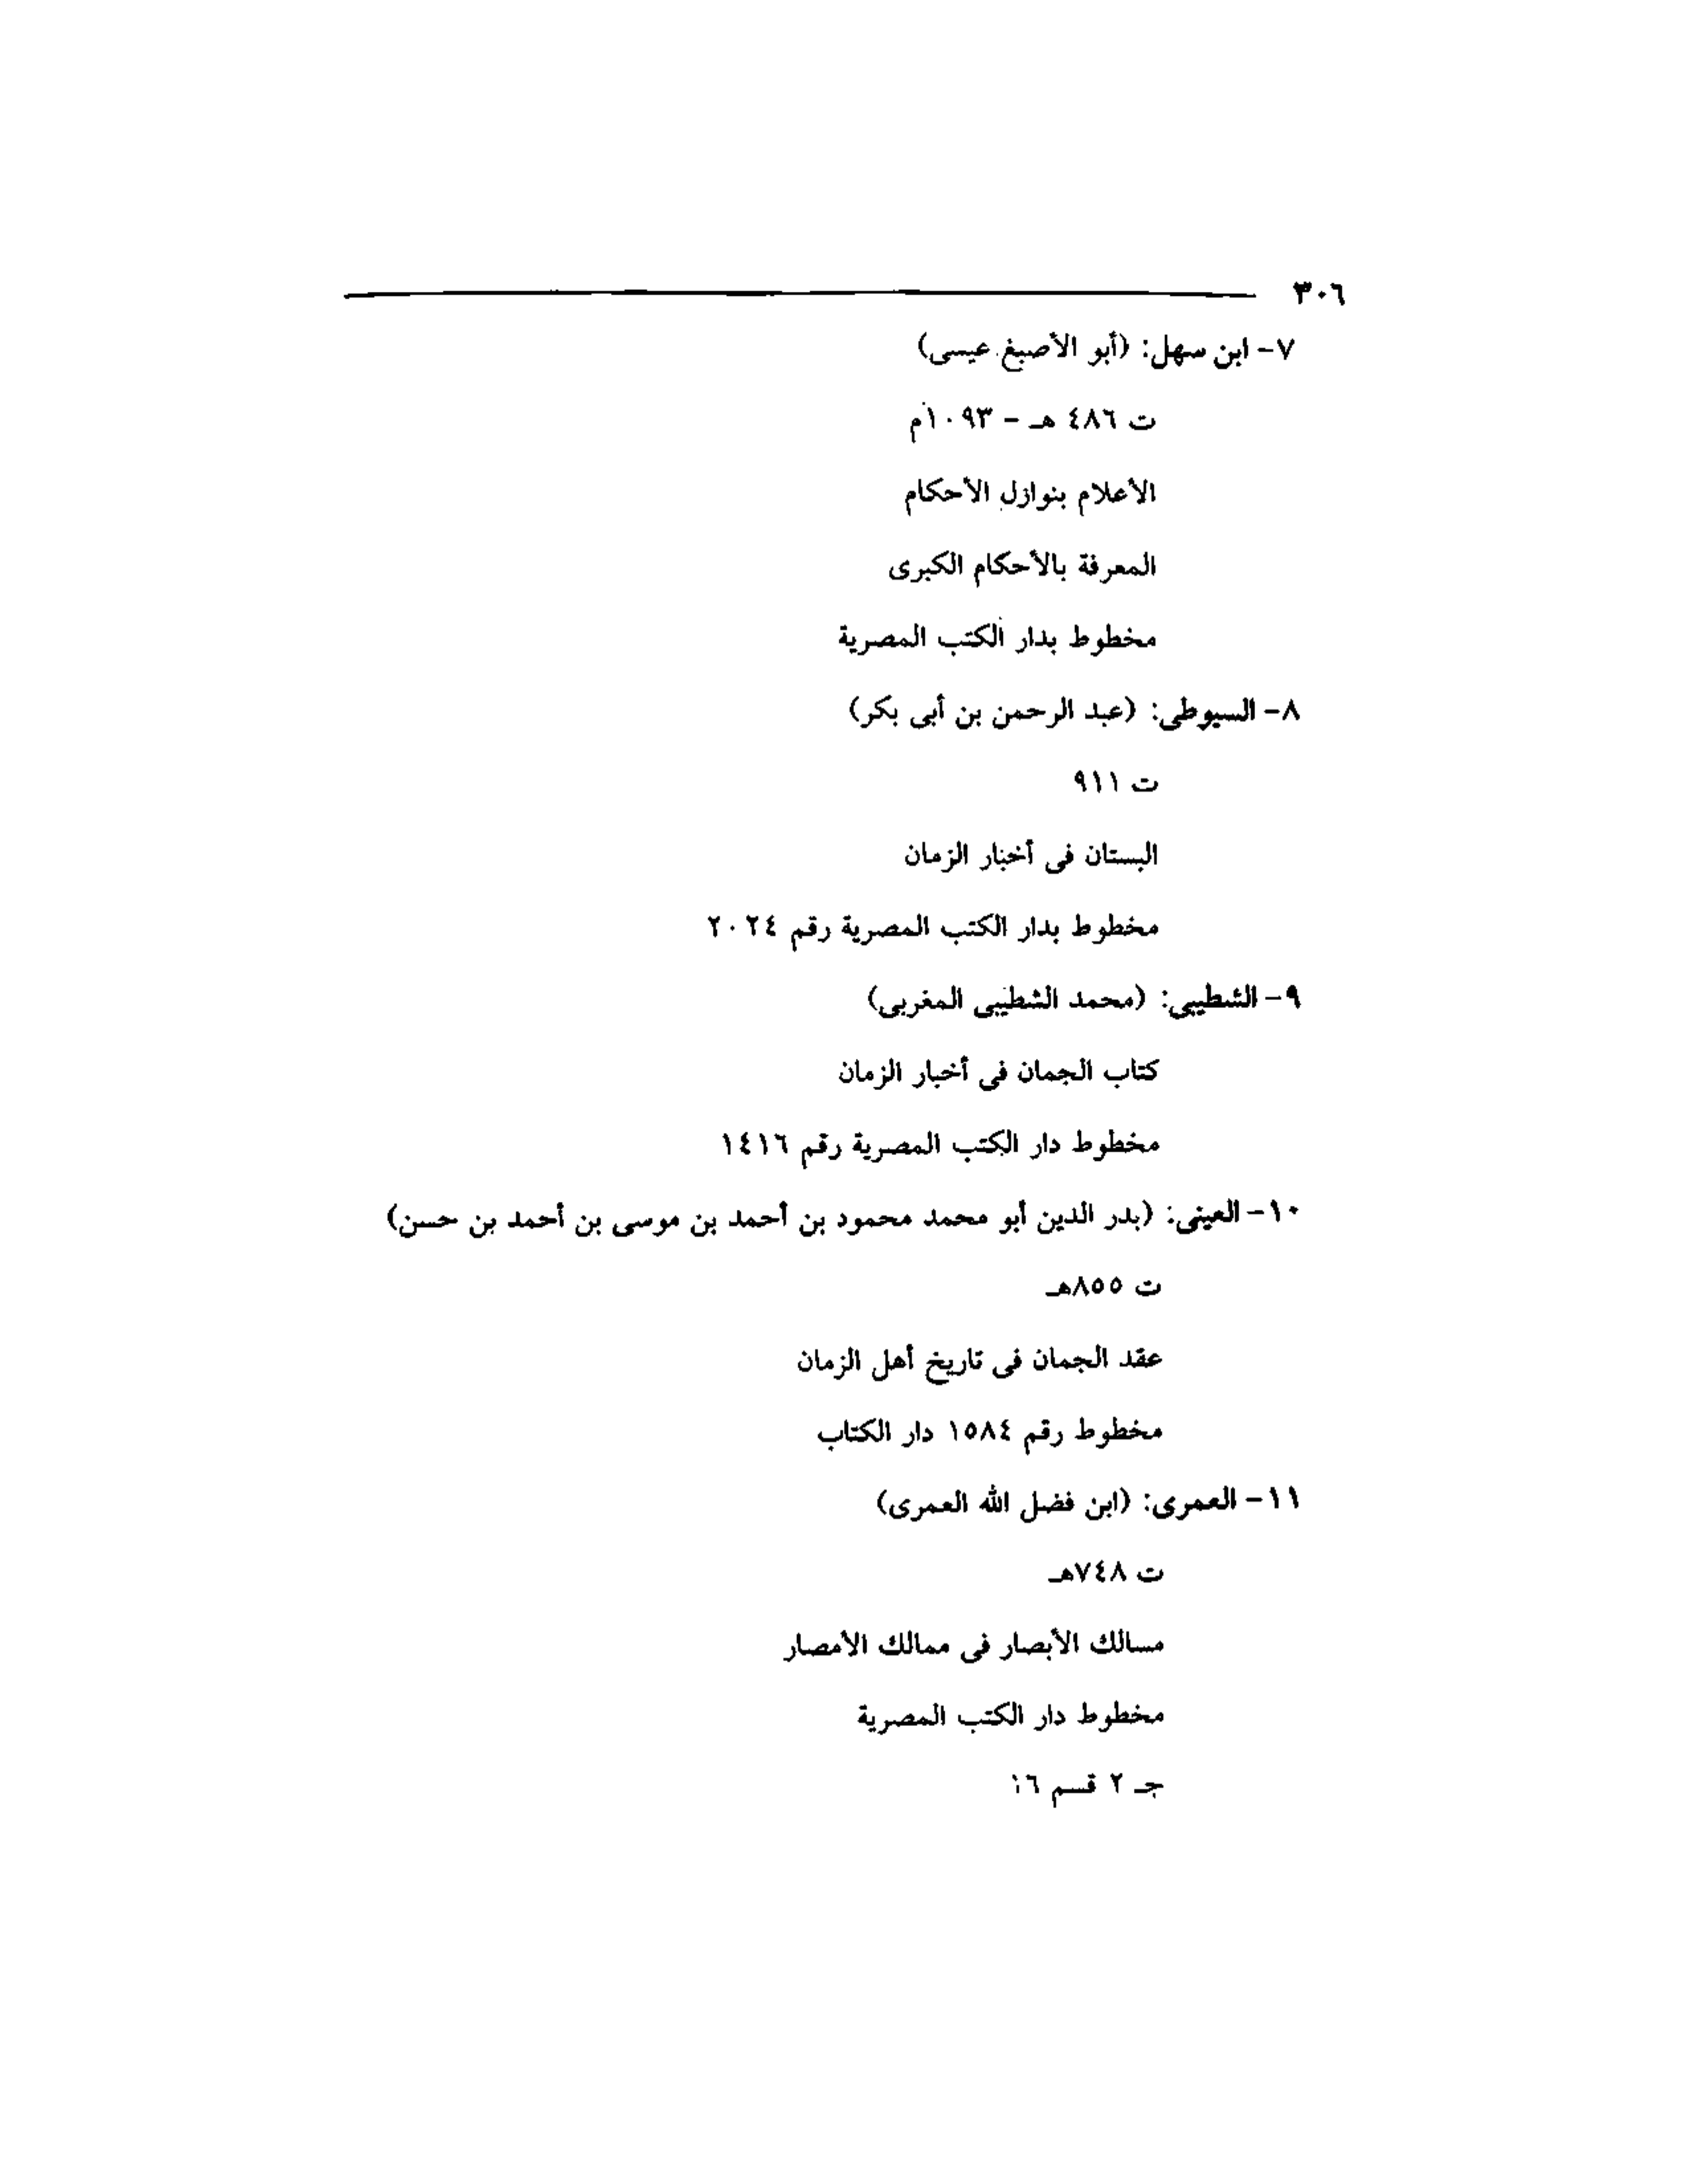 ٣٠٦
٧- ابن سهل: (أبو الأصبغ عيسى)
ت ٤٨٦ هـ - ١٠٩٣م
الأعلام بنوازل الأحكام
المعرفة بالأحكام الكبرى
مخطوط بدار الكتب المصرية
٨- السيوطى: (عبد الرحمن بن أبى بكر)
ت ٩١١
البستان فى أخبار الزمان
مخطوط بدار الكتب المصرية رقم ٢٠٢٤
٩- الشطيبى: (محمد الشطيبى المغربى)
كتاب الجمان فى أخبار الزمان
مخطوط دار الكتب المصرية رقم ١٤١٦
١٠- العينى: (بدر الدين أبو محمد محمود بن أحمد بن موسى بن أحمد بن حسن)
ت ٨٥٥هـ
عقد الجمان فى تاريخ أهل الزمان
مخطوط رقم ١٥٨٤ دار الكتاب
١١- العمرى: (ابن فضل الله العمرى)
ت ٧٤٨هـ
مسالك الأبصار فى ممالك الأمصار
مخطوط دار الكتب المصرية
جـ ٢ قسم